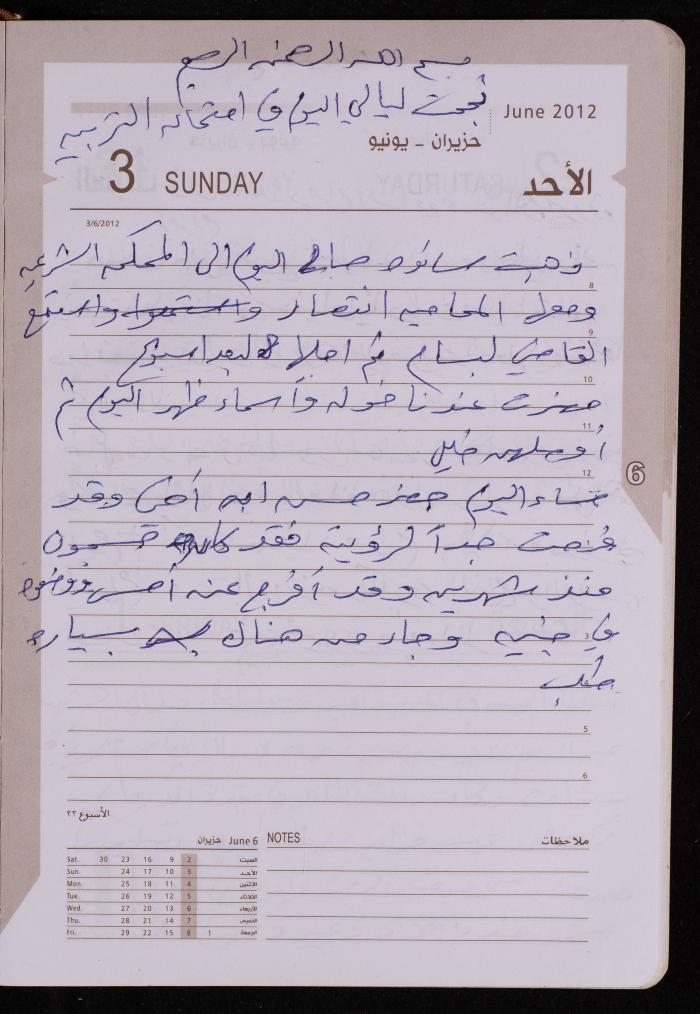 بسم الله الرحمن الرحيم
نجحت ليالي اليوم في امتحان التربية
June 2012
حزيران - يونيو
3 SUNDAY
الأحد
3/6/2012
ذهبت صباح اليوم الى المحكمة الشرعية
8
ومعها المحامية انتصار واستمعوا واستمع
9
القاضي لبسام ثم اجلها لبعد اسبوع
10
حضرت عندنا خولة وأسماء ظهر اليوم ثم
11
أوصلهن خليل
12
مساء اليوم حضر حسن ابن أخي وقد
6
فرحت جداً لرؤيته فقد كان
منذ شهرين وقد أفرج عنه أمس ووضعوه
في جنين وجاء من هناك بسيارة
طلب
5
6
الأسبوع ٢٢
June 6 حزيران
NOTES
ملاحظات
Sat. 30 23 16 9 2 السبت
Sun. 24 17 10 3 الأحد
Mon. 25 18 11 4 الاثنين
Tue. 26 19 12 5 الثلاثاء
Wed. 27 20 13 6 الأربعاء
Thu. 28 21 14 7 الخميس
Fri. 29 22 15 8 1 الجمعة